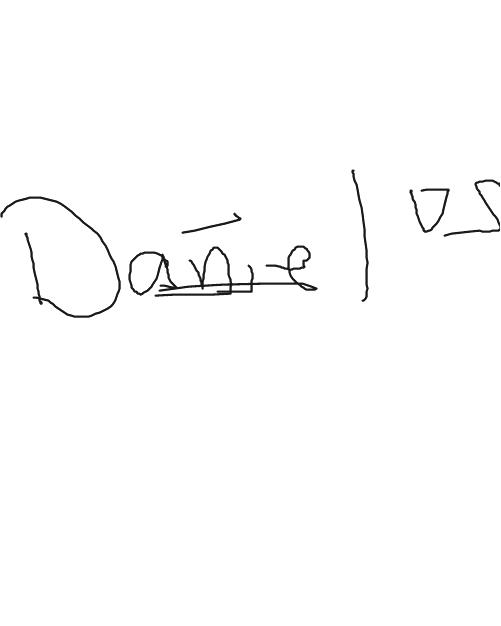 Daniel vs